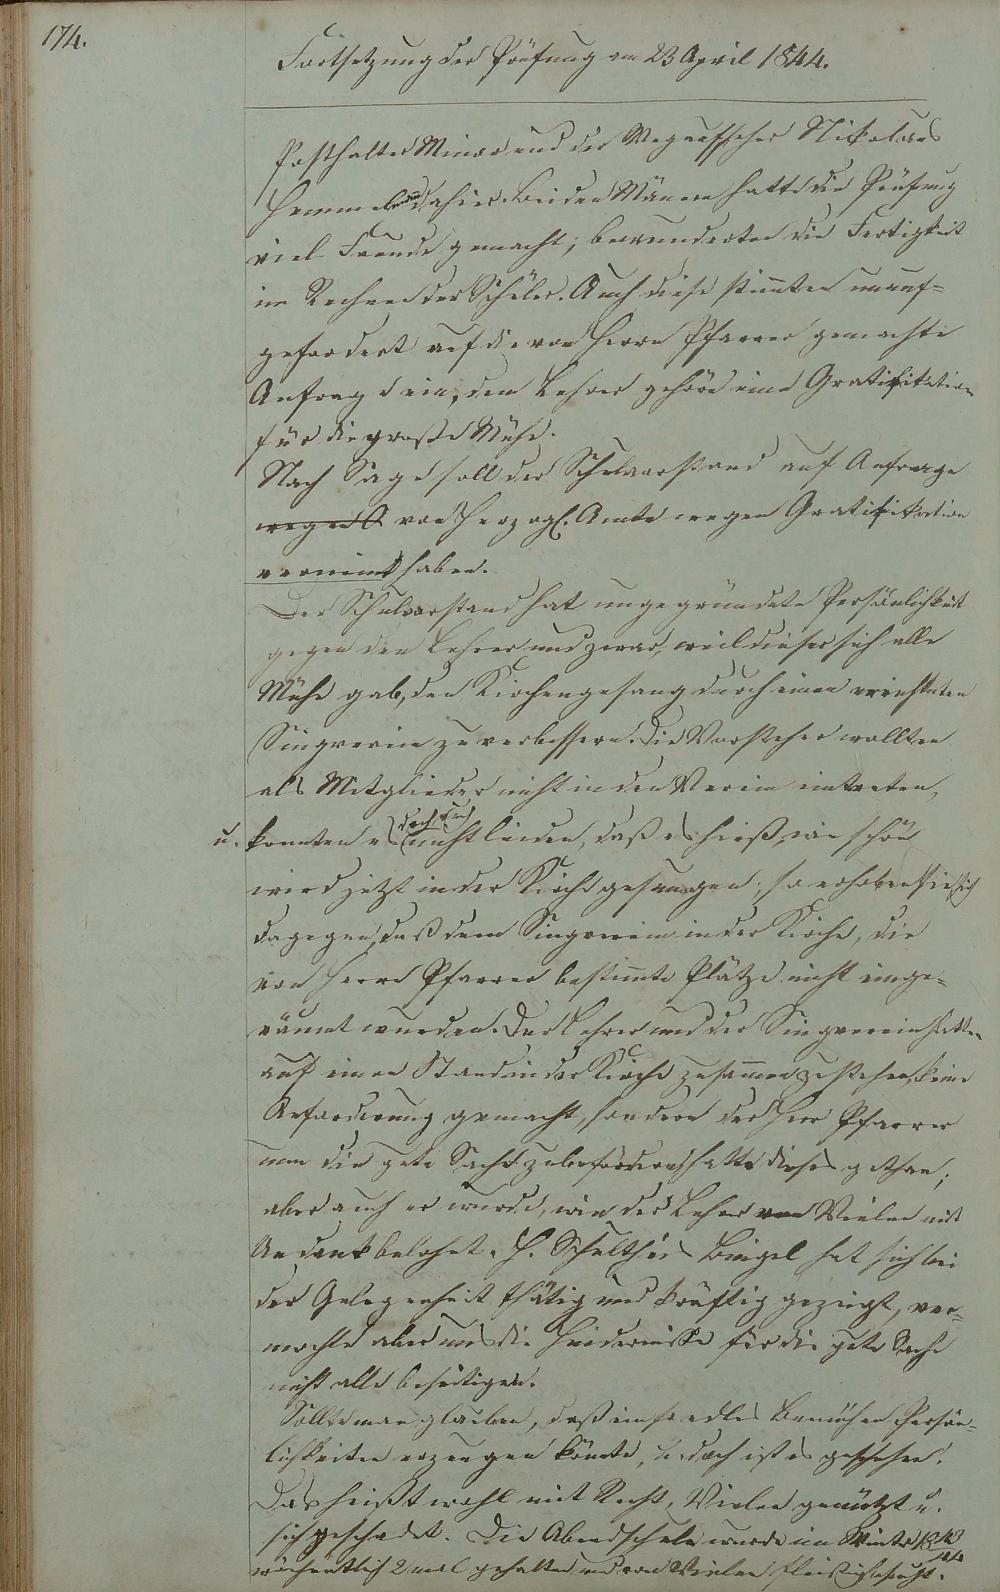 174.
Fortsetzung der Prüfung am 23 April 1844.
Posthalter Minor und der Wegaufseher Nikolaus
Hemmel dahier. Beiden Männern hatte die Prüfung
viel Freude gemacht; bewunderten die Fertigkeit
im Rechnen der Schüler. Auch diese stimten unauf-
gefordert auf die von Herrn Pfarrer gemachte
Anfrage ein, dem Lehrer gehöre eine Gratifikation
für die große Mühe.
Nach Sage soll der Schulvorstand auf Anfrage
wegen G von Herzogl. Amte wegen Gratifikation
verneint haben.
Der Schulvorstand hat ungegründete Persönlichkeit
gegen den Lehrer und zwar, weil dieser sich alle
Mühe gab, den Kirchengesang durch einen errichteten
Singverein zu verbessern. Die Vorsteher wollten
als Mitglieder nicht in den Verein eintreten,
u. konnten es doch auch nicht leiden, daß es hieß, wie schön
wird jetzt in der Kirche gesungen; so erhoben sie sich
dagegen, daß dem Singverein in der Kirche, die
von Herrn Pfarrer bestimte Plätze nicht einge-
räumt wurden. Der Lehrer und der Singverein hatten
auf einen Stand in der Kirche zusammen zu stehen, keine
Anforderung gemacht, sondern der Herr Pfarrer
um die gute Sache zu befördern, hatte dieses gethan;
aber auch er wurde, wie der Lehrer von Vielen mit
Undank belohnt. H. Schultheis Bingel hat sich bei
der Gelegenheit thätig und kräftig gezeigt, ver-
mochte aber uns die Hindernisse für die gute Sache
nicht alle beseitigen.
Sollte man glauben, daß ein so edles Bemühen Persön-
lichkeiten erzeugen könnte, u. doch ist es geschehen.
Das heißt wohl mit Recht, Vielen genützt u.
sich geschadet. Die Abendschule wurde im Winter 1843/44
wöchentlich 2 mal gehalten und von Vielen fleißig besucht.